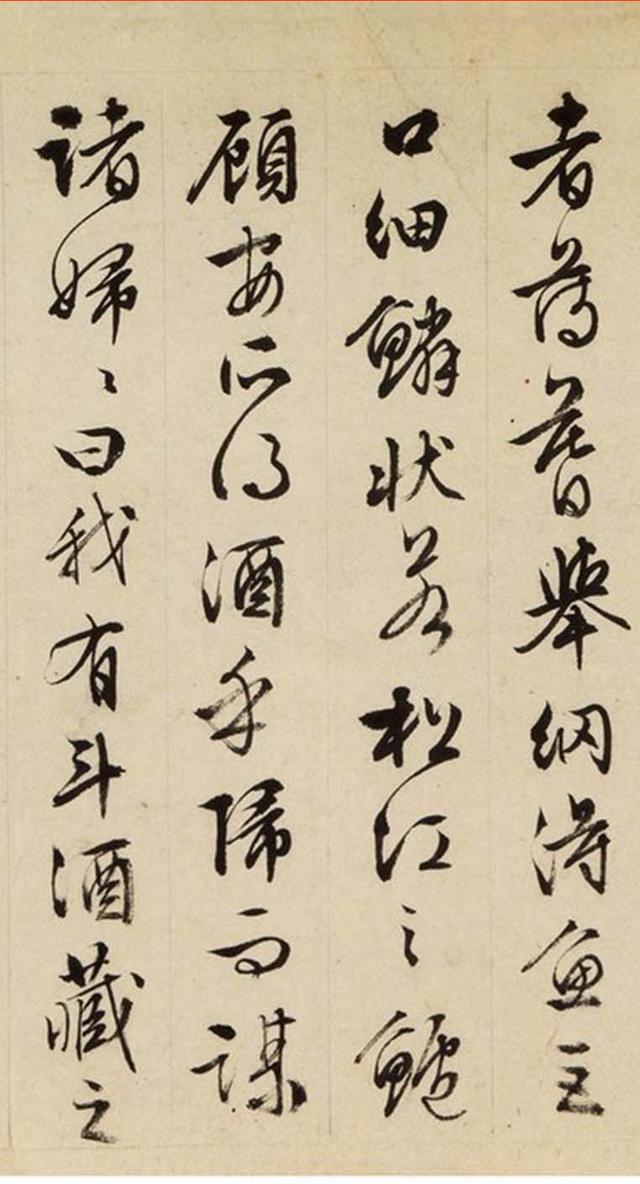 者薄暮舉網得魚巨
口細鱗狀若松江之鱸
顧安所得酒乎歸而謀
諸婦〻曰我有斗酒藏之